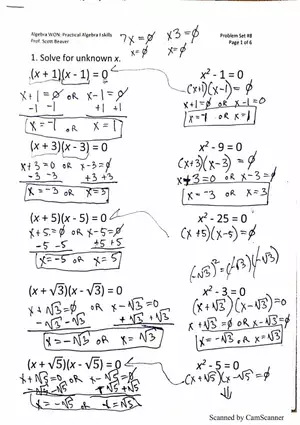 Algebra WON: Practical Algebra I skills
Prof. Scott Beaver
7x = 0
x = 0
x3 = 0
x = 0
Problem Set #8
Page 1 of 6
1. Solve for unknown x.
(x + 1)(x - 1) = 0
x+1 = 0 OR x-1 = 0
-1 -1 +1 +1
x = -1 OR x = 1
x² - 1 = 0
(x+1)(x-1) = 0
x+1 = 0 OR x-1 = 0
x = -1 OR x = 1
(x + 3)(x - 3) = 0
x+3 = 0 OR x-3 = 0
-3 -3 +3 +3
x = -3 OR x = 3
x² - 9 = 0
(x+3)(x-3) = 0
x+3 = 0 OR x-3 = 0
x = -3 OR x = 3
(x + 5)(x - 5) = 0
x+5 = 0 OR x-5 = 0
-5 -5 +5 +5
x = -5 OR x = 5
x² - 25 = 0
(x+5)(x-5) = 0
(-√3)² = (-√3)(-√3)
(x + √3)(x - √3) = 0
x+√3 = 0 OR x-√3 = 0
-√3 -√3 +√3 +√3
x = -√3 OR x = √3
x² - 3 = 0
(x+√3)(x-√3) = 0
x+√3 = 0 OR x-√3 = 0
x = -√3 OR x = √3
(x + √5)(x - √5) = 0
x+√5 = 0 OR x-√5 = 0
-√5 -√5 +√5 +√5
x = -√5 or x = √5
x² - 5 = 0
(x+√5)(x-√5) = 0
Scanned by CamScanner